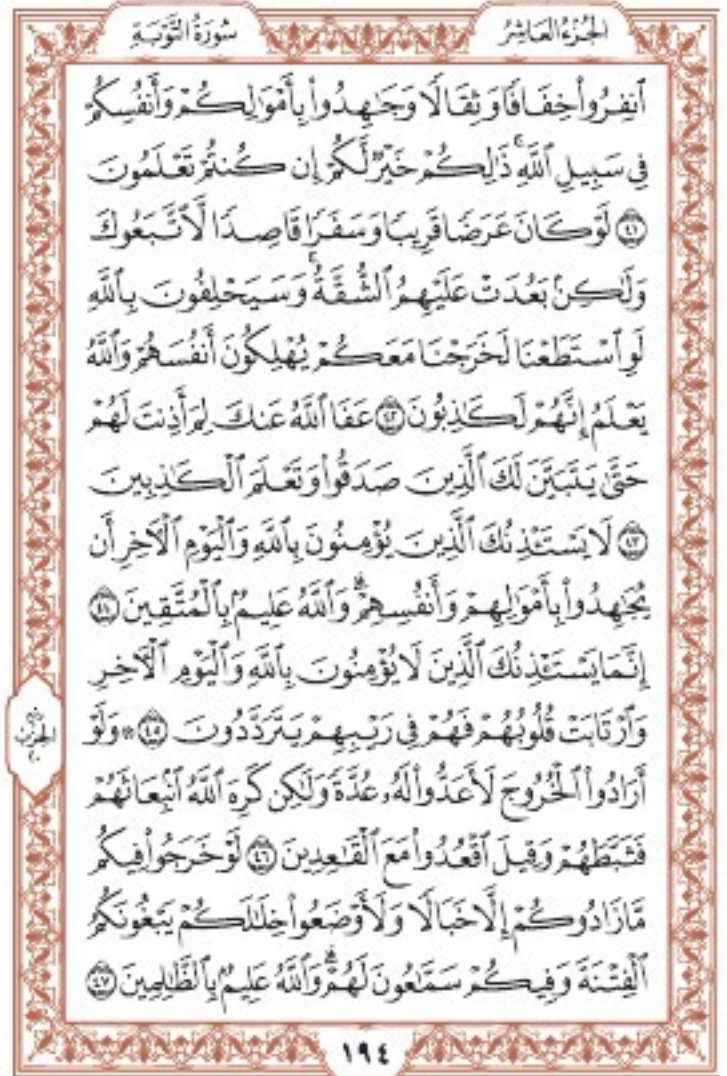 الجُزْءُ العَاشِرُ
سُورَةُ التَّوْبَةِ
ٱنفِرُوا۟ خِفَافًا وَثِقَالًا وَجَٰهِدُوا۟ بِأَمْوَٰلِكُمْ وَأَنفُسِكُمْ
فِى سَبِيلِ ٱللَّهِ ۚ ذَٰلِكُمْ خَيْرٌ لَّكُمْ إِن كُنتُمْ تَعْلَمُونَ
٤١ لَوْ كَانَ عَرَضًا قَرِيبًا وَسَفَرًا قَاصِدًا لَّٱتَّبَعُوكَ
وَلَٰكِنۢ بَعُدَتْ عَلَيْهِمُ ٱلشُّقَّةُ ۚ وَسَيَحْلِفُونَ بِٱللَّهِ
لَوِ ٱسْتَطَعْنَا لَخَرَجْنَا مَعَكُمْ يُهْلِكُونَ أَنفُسَهُمْ وَٱللَّهُ
يَعْلَمُ إِنَّهُمْ لَكَٰذِبُونَ ٤٢ عَفَا ٱللَّهُ عَنكَ لِمَ أَذِنتَ لَهُمْ
حَتَّىٰ يَتَبَيَّنَ لَكَ ٱلَّذِينَ صَدَقُوا۟ وَتَعْلَمَ ٱلْكَٰذِبِينَ
٤٣ لَا يَسْتَـْٔذِنُكَ ٱلَّذِينَ يُؤْمِنُونَ بِٱللَّهِ وَٱلْيَوْمِ ٱلْءَاخِرِ أَن
يُجَٰهِدُوا۟ بِأَمْوَٰلِهِمْ وَأَنفُسِهِمْ ۗ وَٱللَّهُ عَلِيمٌۢ بِٱلْمُتَّقِينَ ٤٤
إِنَّمَا يَسْتَـْٔذِنُكَ ٱلَّذِينَ لَا يُؤْمِنُونَ بِٱللَّهِ وَٱلْيَوْمِ ٱلْءَاخِرِ
وَٱرْتَابَتْ قُلُوبُهُمْ فَهُمْ فِى رَيْبِهِمْ يَتَرَدَّدُونَ ٤٥ ۞ وَلَوْ
أَرَادُوا۟ ٱلْخُرُوجَ لَأَعَدُّوا۟ لَهُۥ عُدَّةً وَلَٰكِن كَرِهَ ٱللَّهُ ٱنۢبِعَاثَهُمْ
فَثَبَّطَهُمْ وَقِيلَ ٱقْعُدُوا۟ مَعَ ٱلْقَٰعِدِينَ ٤٦ لَوْ خَرَجُوا۟ فِيكُم
مَّا زَادُوكُمْ إِلَّا خَبَالًا وَلَأَوْضَعُوا۟ خِلَٰلَكُمْ يَبْغُونَكُمُ
ٱلْفِتْنَةَ وَفِيكُمْ سَمَّٰعُونَ لَهُمْ ۗ وَٱللَّهُ عَلِيمٌۢ بِٱلظَّٰلِمِينَ ٤٧
الحزب
٢٠
١٩٤